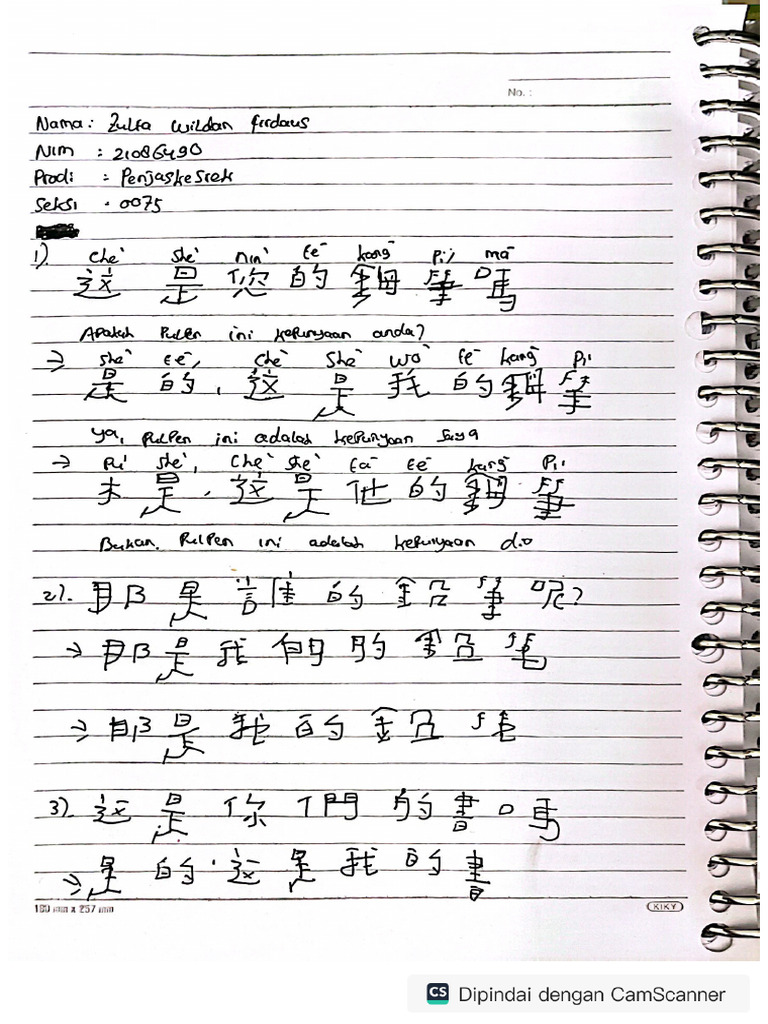 No. :
Nama : Zulfa Wildan Firdaus
NIM : 21086490
Prodi : Penjaskesrek
Seksi . 0075
1). Chè shè nín tē kāng pǐ mā
這 是 您 的 鋼 筆 嗎
Apakah Pulpen ini kepunyaan anda?
→ shè tē, chè shè wǒ tē kāng pǐ
是 的 , 這 是 我 的 鋼 筆
ya, pulpen ini adalah kepunyaan saya
→ Pú shè, Chè shè tā tē kāng Pǐ
不 是 , 這 是 他 的 鋼 筆
Bukan. Pulpen ini adalah kepunyaan dio
2). 那 是 誰 的 鉛 筆 呢?
→ 那 是 我 們 的 鉛 筆
→ 那 是 我 的 鉛 筆
3). 這 是 你 們 的 書 嗎
→ 是 的 . 這 是 我 的 書
180 mm x 257 mm
KIKY
CS Dipindai dengan CamScanner